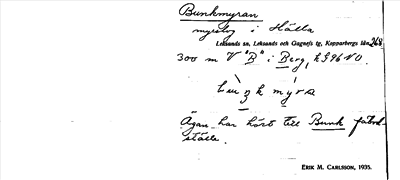 Bunkmyran
myrslog i Hälla
Leksands sn, Leksands och Gagnefs tg, Kopparbergs län 268
300 m V "B" i Berg, k 996 NO.
Ägan har hört till Bunk fäbod-
ställe.
ERIK M. CARLSSON, 1935.